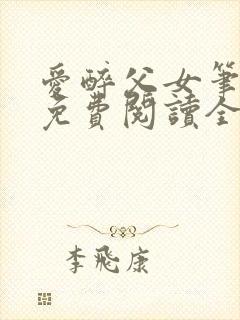 愛醉父女筆
免費閱讀全
李飛康